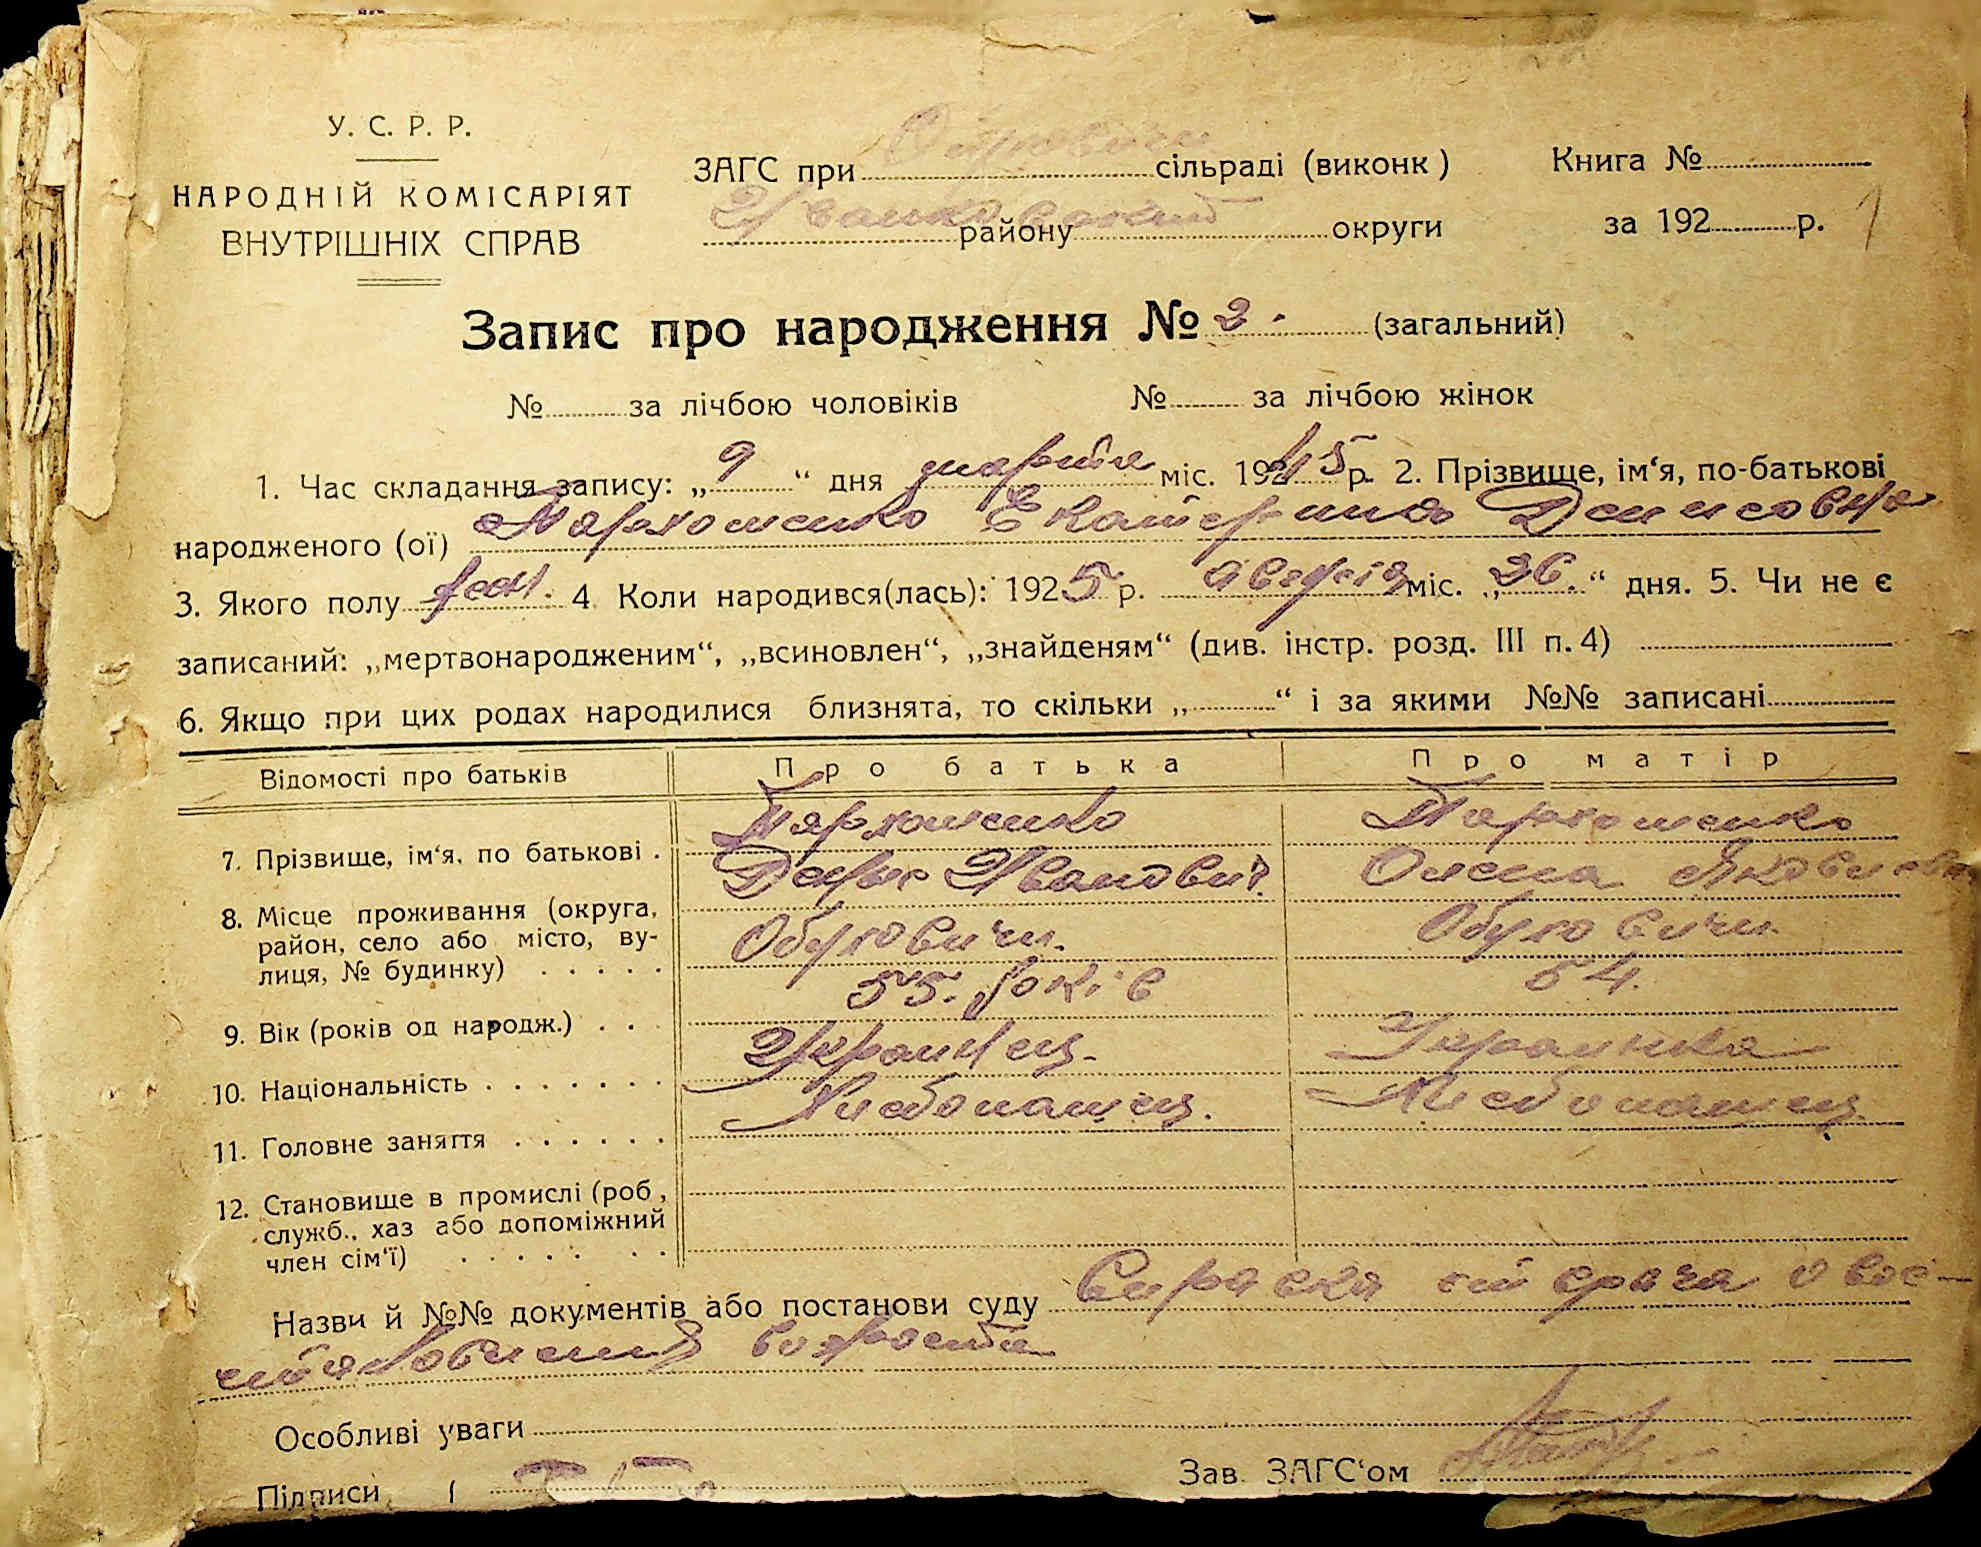 У. С. Р. Р.
НАРОДНІЙ КОМІСАРІЯТ
ВНУТРІШНІХ СПРАВ
ЗАГС при сільраді (виконк)
району округи
Книга №
за 192 р.
1
Запис про народження № 2. (загальний)
№ за лічбою чоловіків № за лічбою жінок
1. Час складання запису: „ 9 “ дня марта міс. 1945 р. 2. Прізвище, ім‘я, по-батькові
народженого (ої) Пархоменко Екатерина Денисовна
3. Якого полу жен. 4 Коли народився(лась): 1925 р. Августа міс. „ 26. “ дня. 5. Чи не є
записаний: „мертвонародженим“, „всиновлен“, „знайденям“ (див. інстр. розд. III п. 4)
6. Якщо при цих родах народилися близнята, то скільки „ “ і за якими №№ записані
Відомості про батьків Про батька Про матір
7. Прізвище, ім‘я, по батькові . Пархоменко Иванович Пархоменко Олена Яковлевна
8. Місце проживання (округа, район, село або місто, вулиця, № будинку) . . . . . Обуховичи. Обуховичи.
9. Вік (років од народж.) . . . 55. років 54.
10. Національність . . . . . . . Украинец. Украинка
11. Головне заняття . . . . . . Хлебопашец. Хлебопашец.
12. Становище в промислі (роб, служб., хаз або допоміжний член сім‘ї) . . . . . . .
Назви й №№ документів або постанови суду врача о вос-
становлении возраста
Особливі уваги
Підписи {
Зав. ЗАГС‘ом